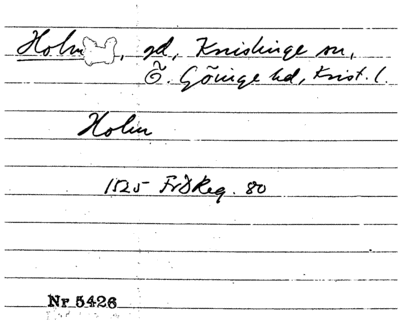 Holm, gd, Knislinge sn,
Ö. Göinge hd, Krist. l.
Holm
1525 FrDReg. 80
Nr 5426